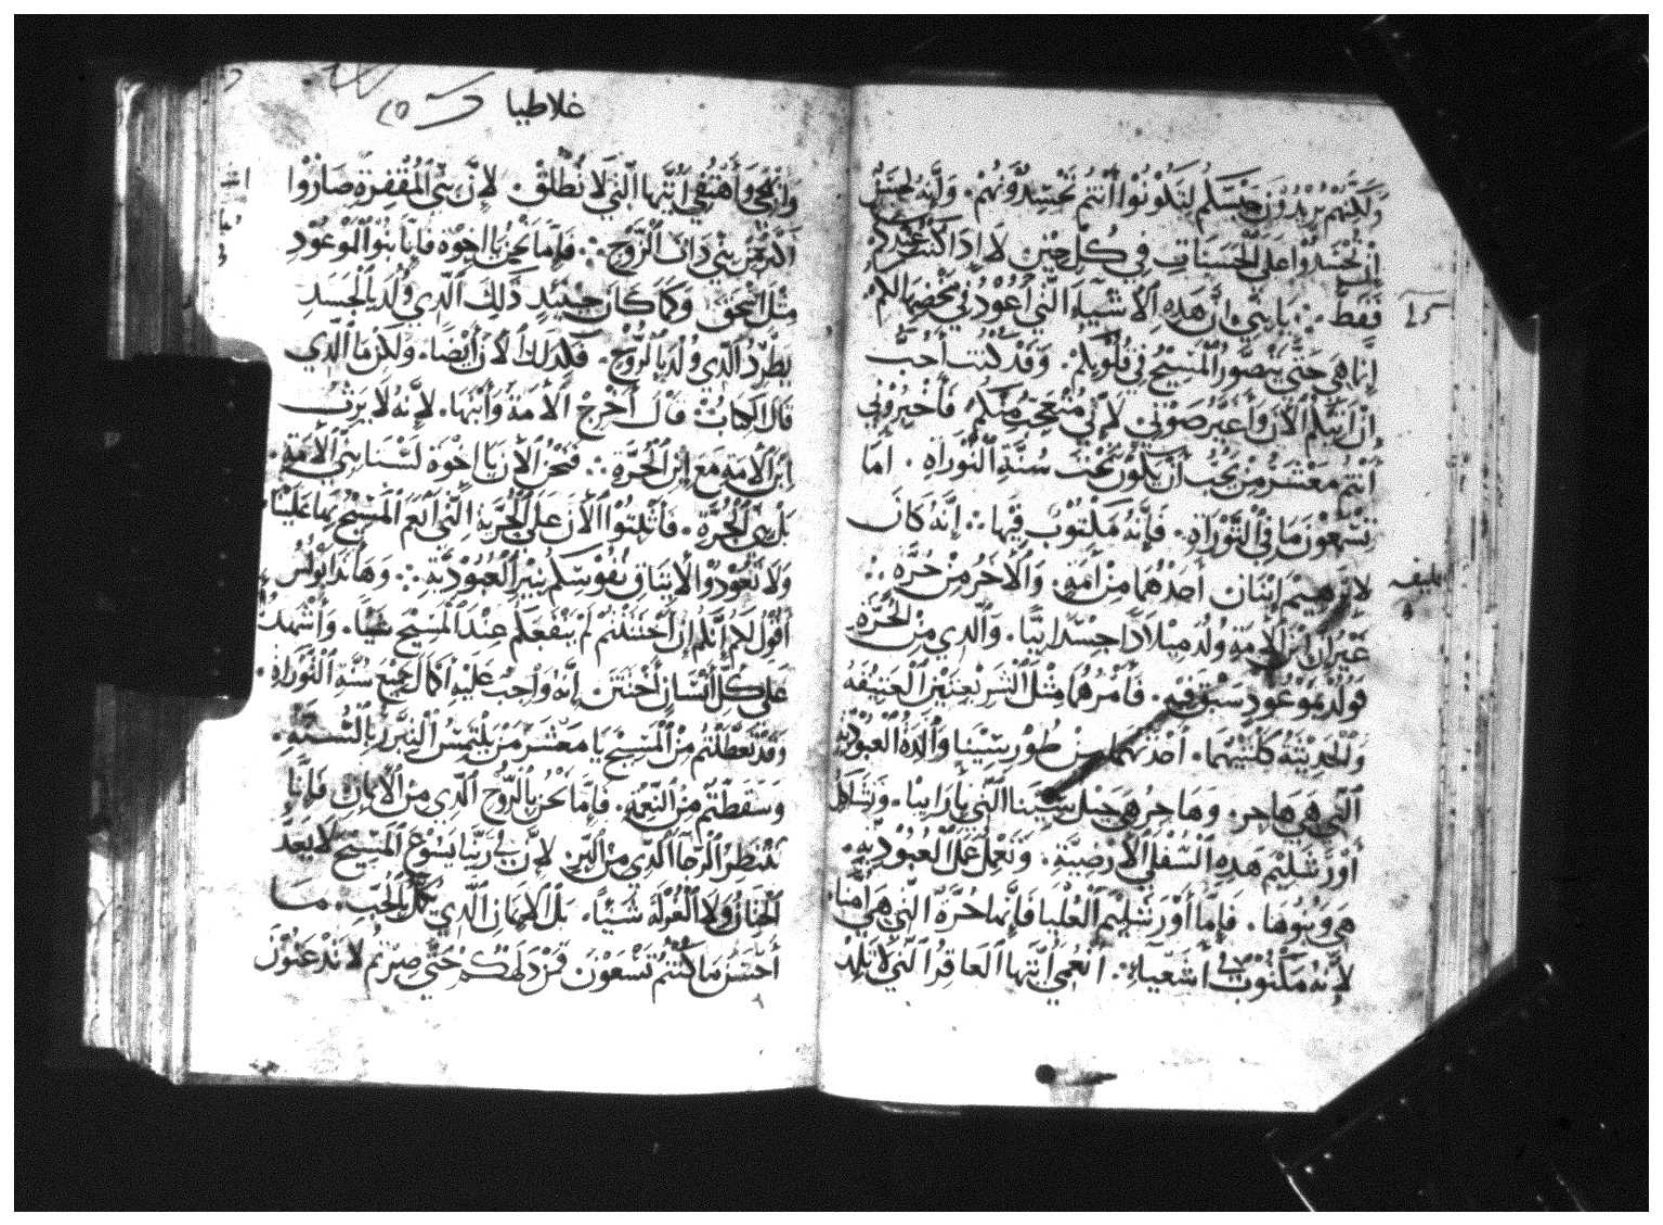 ولكنهم يريدون حبسكم لتكونوا أنتم تحسدونهم. وإنه لحسن
ان تحسدوا على الحسنات في كل حين لا إذا كنت عندكم
فقط ∴ يا بني وأن هذه الأشياء التي أعود في مخضها لكم
إنما هي حتى يتصور المسيح في قلوبكم. وقد كنت أحب
ان اتيكم الآن وأغير صوتي لأني متعجب منكم فأخبروني
أنتم معشر من يحب أن يكون تحت سنة التوراة. أما
تسمعون ما في التوراة. فإنه مكتوب فيها ∴ إنه كان
لإبرهيم ابنان أحدهما من أمة. والآخر من حرة ∴
غير ان ابن الأمة ولد ميلادا جسدانيا. والذي من الحرة
فولد بموعود سبق فيه. فأمرهما مثل الشريعتين العتيقة
والحديثة كلتيهما. أحدهما من طور سينا والدة العبودية
التي هي هاجر. وهاجر هي جبل سينا التي بأرابيا. وتشاكل
أورشليم هذه السفلى الأرضية. وتعمل عمل العبودية.
هي وبنوها. فإما أورشليم العليا فإنها حرة التي هي أمنا.
لأنه مكتوب في أشعياء ∴ انعمي أيتها العاقر التي لا تلد
غلاطيا
وابتهجي وأهتفي أيتها التي لا تطلق. لإن بني المقفرة صاروا
أكثر من بني ذات الزوج ∴ فإما نحن يا اخوة فإنا بنو الموعود
مثل اسحق وكما كان حينئذ ذلك الذي ولد بالجسد
يطرد الذي ولد بالروح. فكذلك الآن أيضا. ولكن ما الذي
قال الكتاب قال أخرج الأمة وأبنها. لإنه لا يرث
ابن الأمة مع ابن الحرة ∴ فنحن الآن يا اخوة لسنا بني الأمة.
بل بني الحرة. فأثبتوا الآن على الحرية التي انعم المسيح بها علينا
ولا تعودوا الى يثاق نفوسكم بنير العبودية ∴ وهانذا بولس
أقول لكم إنكم إن أختتنتم لم ينفعكم عند المسيح شيا. وأشهد
على كل أنسان أختتن إنه واجب عليه أكمال جميع سنة التوراة.
وقد تعطلتم من المسيح يا معشر من يلتمس التبرر بالسنة.
وسقطتم من النعمة. فإما نحن بالروح الذي من الأيمان فإنا
ننتظر الرجاء الذي من البر. لإن في ربنا يسوع المسيح لا يعد
الختان ولا الغرلة شيئا. بل الإيمان الذي يكمل بالحب. ما
أحسن ما كنتم تسعون فمن دلهكم حتى صرتم لا تذعنون